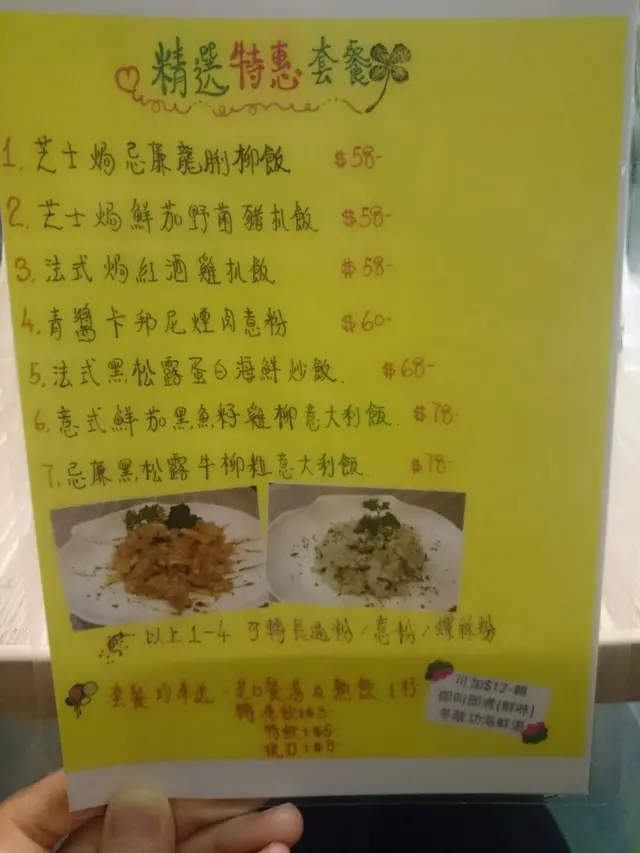 精選特惠套餐
1. 芝士焗忌廉龍脷柳飯 $58-
2. 芝士焗鮮茄野菌豬扒飯 $58-
3. 法式焗紅酒雞扒飯 $58-
4. 青醬卡邦尼煙肉意粉 $60-
5. 法式黑松露蛋白海鮮炒飯. $68-
6. 意式鮮茄黑魚籽雞柳意大利飯. $78-
7. 忌廉黑松露牛柳粒意大利飯. $78-
以上1-4 可轉長通粉/意粉/螺絲粉
套餐均奉送: 是日餐湯 & 熱飲1杯
轉凍飲+$3-
特飲+$5-
梳打+$8-
可加$12-轉
即叫即煮(鮮啤)
冬蔭功海鮮湯